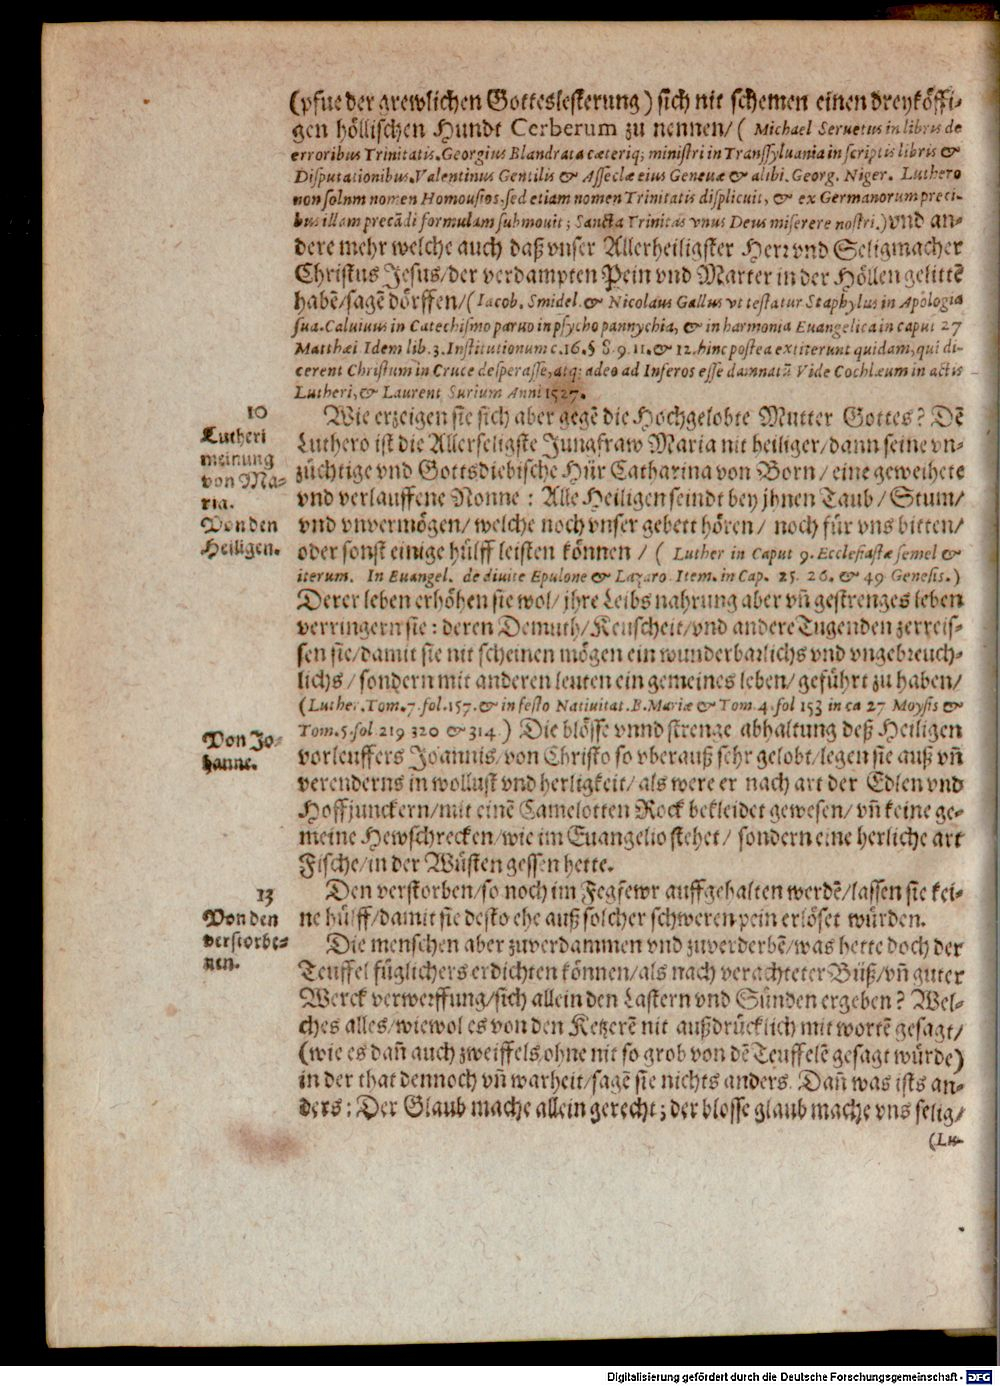 (pfue der grewlichen Gotteslesterung) sich nit schemen einen dreyköffi-
gen höllischen Hundt Cerberum zu nennen/ ( Michael Seruetus in libris de
erroribus Trinitatis. Georgius Blandrata cæteriq; ministri in Transsyluania in scriptis libris &
Disputationibus. Valentinus Gentilis & Asseclæ eius Geneuæ & alibi. Georg. Niger. Luthero
non solum nomen Homousios, sed etiam nomen Trinitatis displicuit, & ex Germanorum preci-
bus illam precādi formulam submouit; Sancta Trinitas vnus Deus miserere nostri.) vnd an-
dere mehr welche auch daß vnser Allerheiligster Herr vnd Seligmacher
Christus Jesus/ der verdampten Pein vnd Marter in der Höllen gelittē
habē/ sagē dörffen/ ( Iacob. Smidel. & Nicolaus Gallus vt testatur Staphylus in Apologia
sua. Caluinus in Catechismo paruo in psycho pannychia, & in harmonia Euangelica in caput 27
Matthæi Idem lib. 3. Institutionum c. 16. § 8. 9. 11. & 12. hinc postea extiterunt quidam, qui di-
cerent Christum in Cruce desperasse, atq; adeo ad Inferos esse damnatū Vide Cochlæum in actis
Lutheri, & Laurent. Surium Anni 1527.
10
Lutheri
meinung
von Ma-
ria.
Wie erzeigen sie sich aber gegē die Hochgelobte Mutter Gottes? Dē
Luthero ist die Allerseligste Jungfraw Maria nit heiliger/ dann seine vn-
züchtige vnd Gottsdiebische Hür Catharina von Born/ eine geweihete
vnd verlauffene Nonne : Alle Heiligen seindt bey jhnen Taub/ Stum/
Von den
Heiligen.
vnd vnvermögen/ welche noch vnser gebett hören/ noch für vns bitten/
oder sonst einige hülff leisten können / ( Luther in Caput 9. Ecclesiastæ semel &
iterum. In Euangel. de diuite Epulone & Lazaro Item. in Cap. 25. 26. & 49 Genesis.)
Derer leben erhöhen sie wol/ jhre Leibs nahrung aber vñ gestrenges leben
verringern sie : deren Demuth/ Keuscheit/ vnd andere Tugenden zerreis-
sen sie/ damit sie nit scheinen mögen ein wunderbarlichs vnd vngebreuch-
lichs / sondern mit anderen leuten ein gemeines leben/ geführt zu haben/
(Luther. Tom. 7. fol. 157. & in festo Natiuitat. B. Mariæ & Tom. 4. fol 153 in ca 27 Moysis &
Tom. 5. fol 219 320 & 314.) Die blösse vnnd strenge abhaltung deß Heiligen
Von Jo-
hanne.
vorleuffers Joannis/ von Christo so vberauß sehr gelobt/ legen sie auß vñ
verenderns in wollust vnd herligkeit/ als were er nach art der Edlen vnd
Hoffjunckern/ mit einē Camelotten Rock bekleidet gewesen/ vñ keine ge-
meine Hewschrecken/ wie im Euangelio stehet/ sondern eine herliche art
Fische/ in der Wüsten gessen hette.
13
Von den
verstorbe-
nen.
Den verstorben/ so noch im Fegfewr auffgehalten werdē/ lassen sie kei-
ne hülff/ damit sie desto ehe auß solcher schweren pein erlöset würden.
Die menschen aber zuverdammen vnd zuverderbē/ was hette doch der
Teuffel füglichers erdichten können/ als nach verachteter Büß/ vñ guter
Werck verwerffung/ sich allein den Lastern vnd Sünden ergeben? Wel-
ches alles/ wiewol es von den Ketzerē nit außdrücklich mit wortē gesagt/
(wie es dañ auch zweiffels ohne nit so grob von dē Teuffelē gesagt würde)
in der that dennoch vñ warheit/ sagē sie nichts anders. Dañ was ists an-
ders : Der Glaub mache allein gerecht; der blosse glaub mache vns selig/
(Lu-
Digitalisierung gefördert durch die Deutsche Forschungsgemeinschaft - DFG